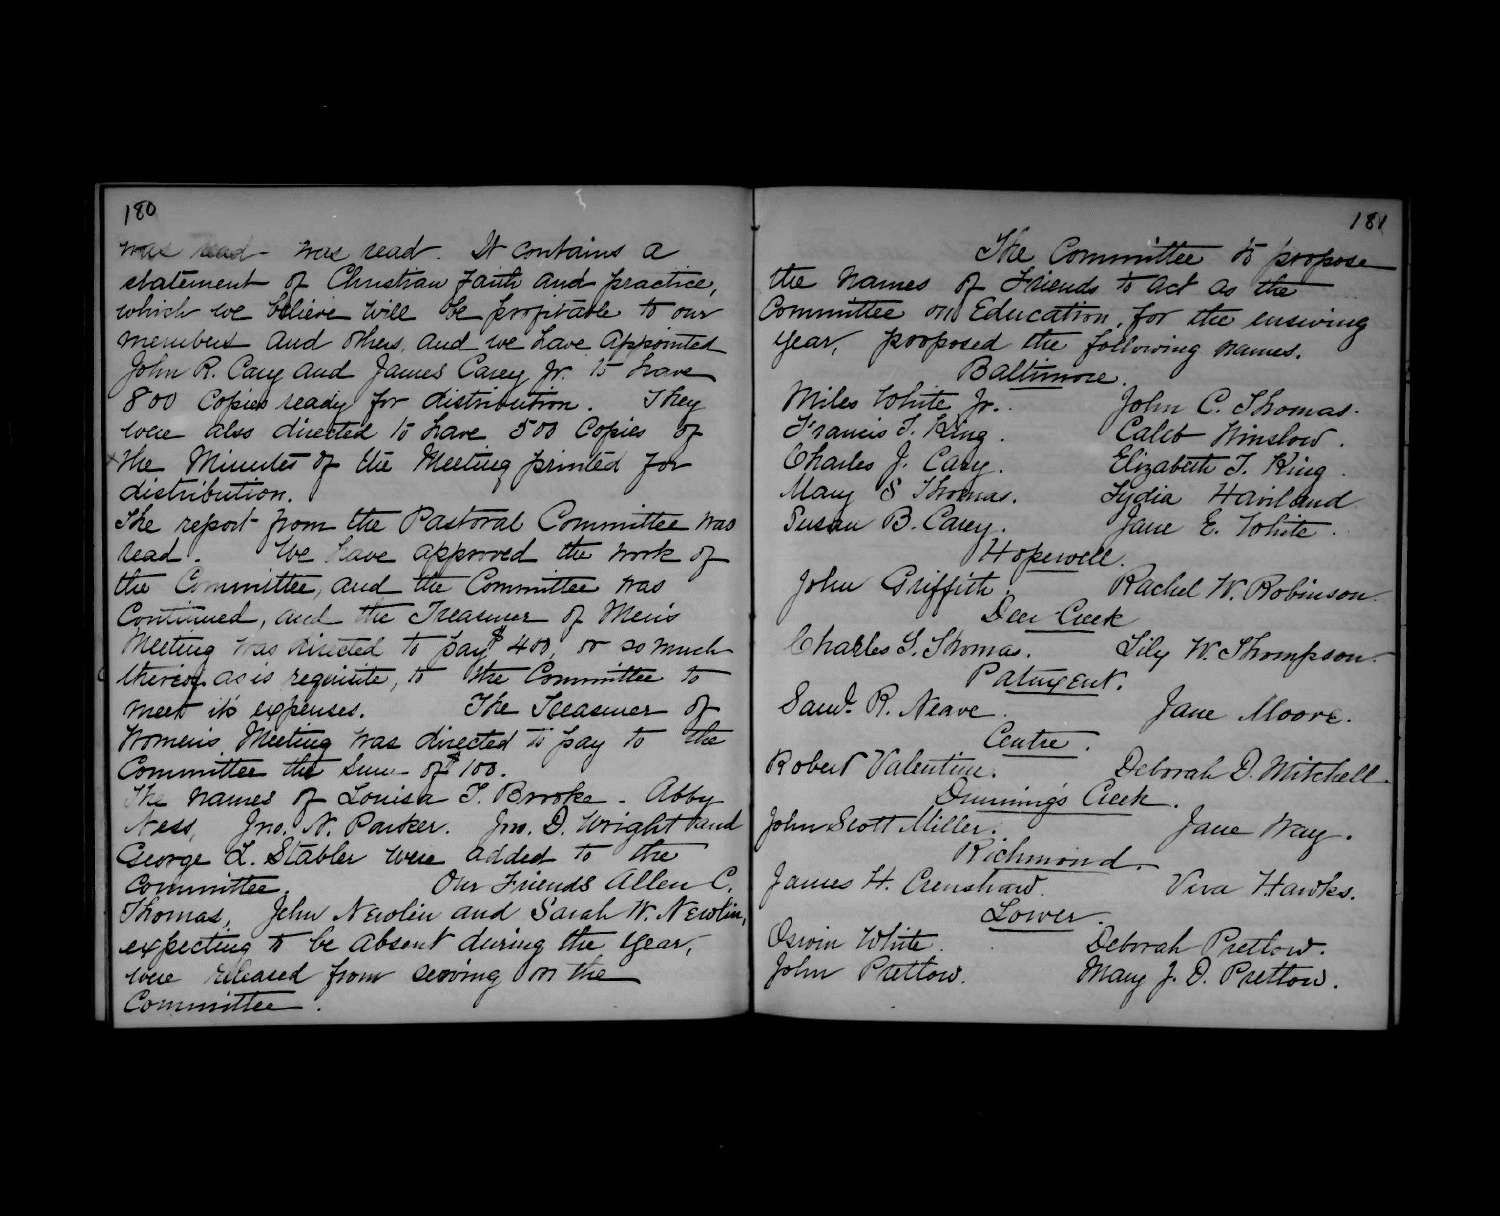 180
was read - was read. It contains a
statement of Christian faith and practice,
which we believe will be profitable to our
members and others, and we have appointed
John R. Cary and James Carey Jr. to have
800 Copies ready for distribution. They
were also directed to have 500 Copies of
the Minutes of the Meeting printed for
distribution.
The report from the Pastoral Committee was
read. We have approved the work of
the Committee, and the Committee was
Continued, and the Treasurer of Men's
Meeting was directed to pay $400, or so much
thereof as is requisite, to the Committee to
meet it's expenses. The Treasurer of
Women's Meeting was directed to pay to the
Committee the sum of $100.
The names of Louisa T. Brooke - Abby
Ness, Jno. N. Parker. Jno. D. Wright and
George L. Stabler were added to the
Committee. Our Friends Allen C.
Thomas, John Newlin and Sarah W. Newlin,
expecting to be absent during the year,
were released from serving on the
Committee.
181
The Committee to propose
the names of Friends to act as the
Committee on Education, for the ensuing
year, proposed the following names.
Baltimore.
Miles White Jr. John C. Thomas.
Francis T. King. Caleb Winslow.
Charles J. Cary. Elizabeth T. King.
Mary S Thomas. Lydia Haviland
Susan B. Carey. Jane E. White.
Hopewell.
John Griffith. Rachel W. Robinson.
Deer Creek
Charles G. Thomas. Lily W. Thompson.
Patuxent.
Saml. R. Neave. Jane Moore.
Centre.
Robert Valentine. Deborah D. Mitchell.
Dunning's Creek.
John Scott Miller. Jane Way.
Richmond.
James H. Crenshaw. Viva Hawks.
Lower.
Oswin White. Deborah Pretlow.
John Pretlow. Mary J. D. Pretlow.